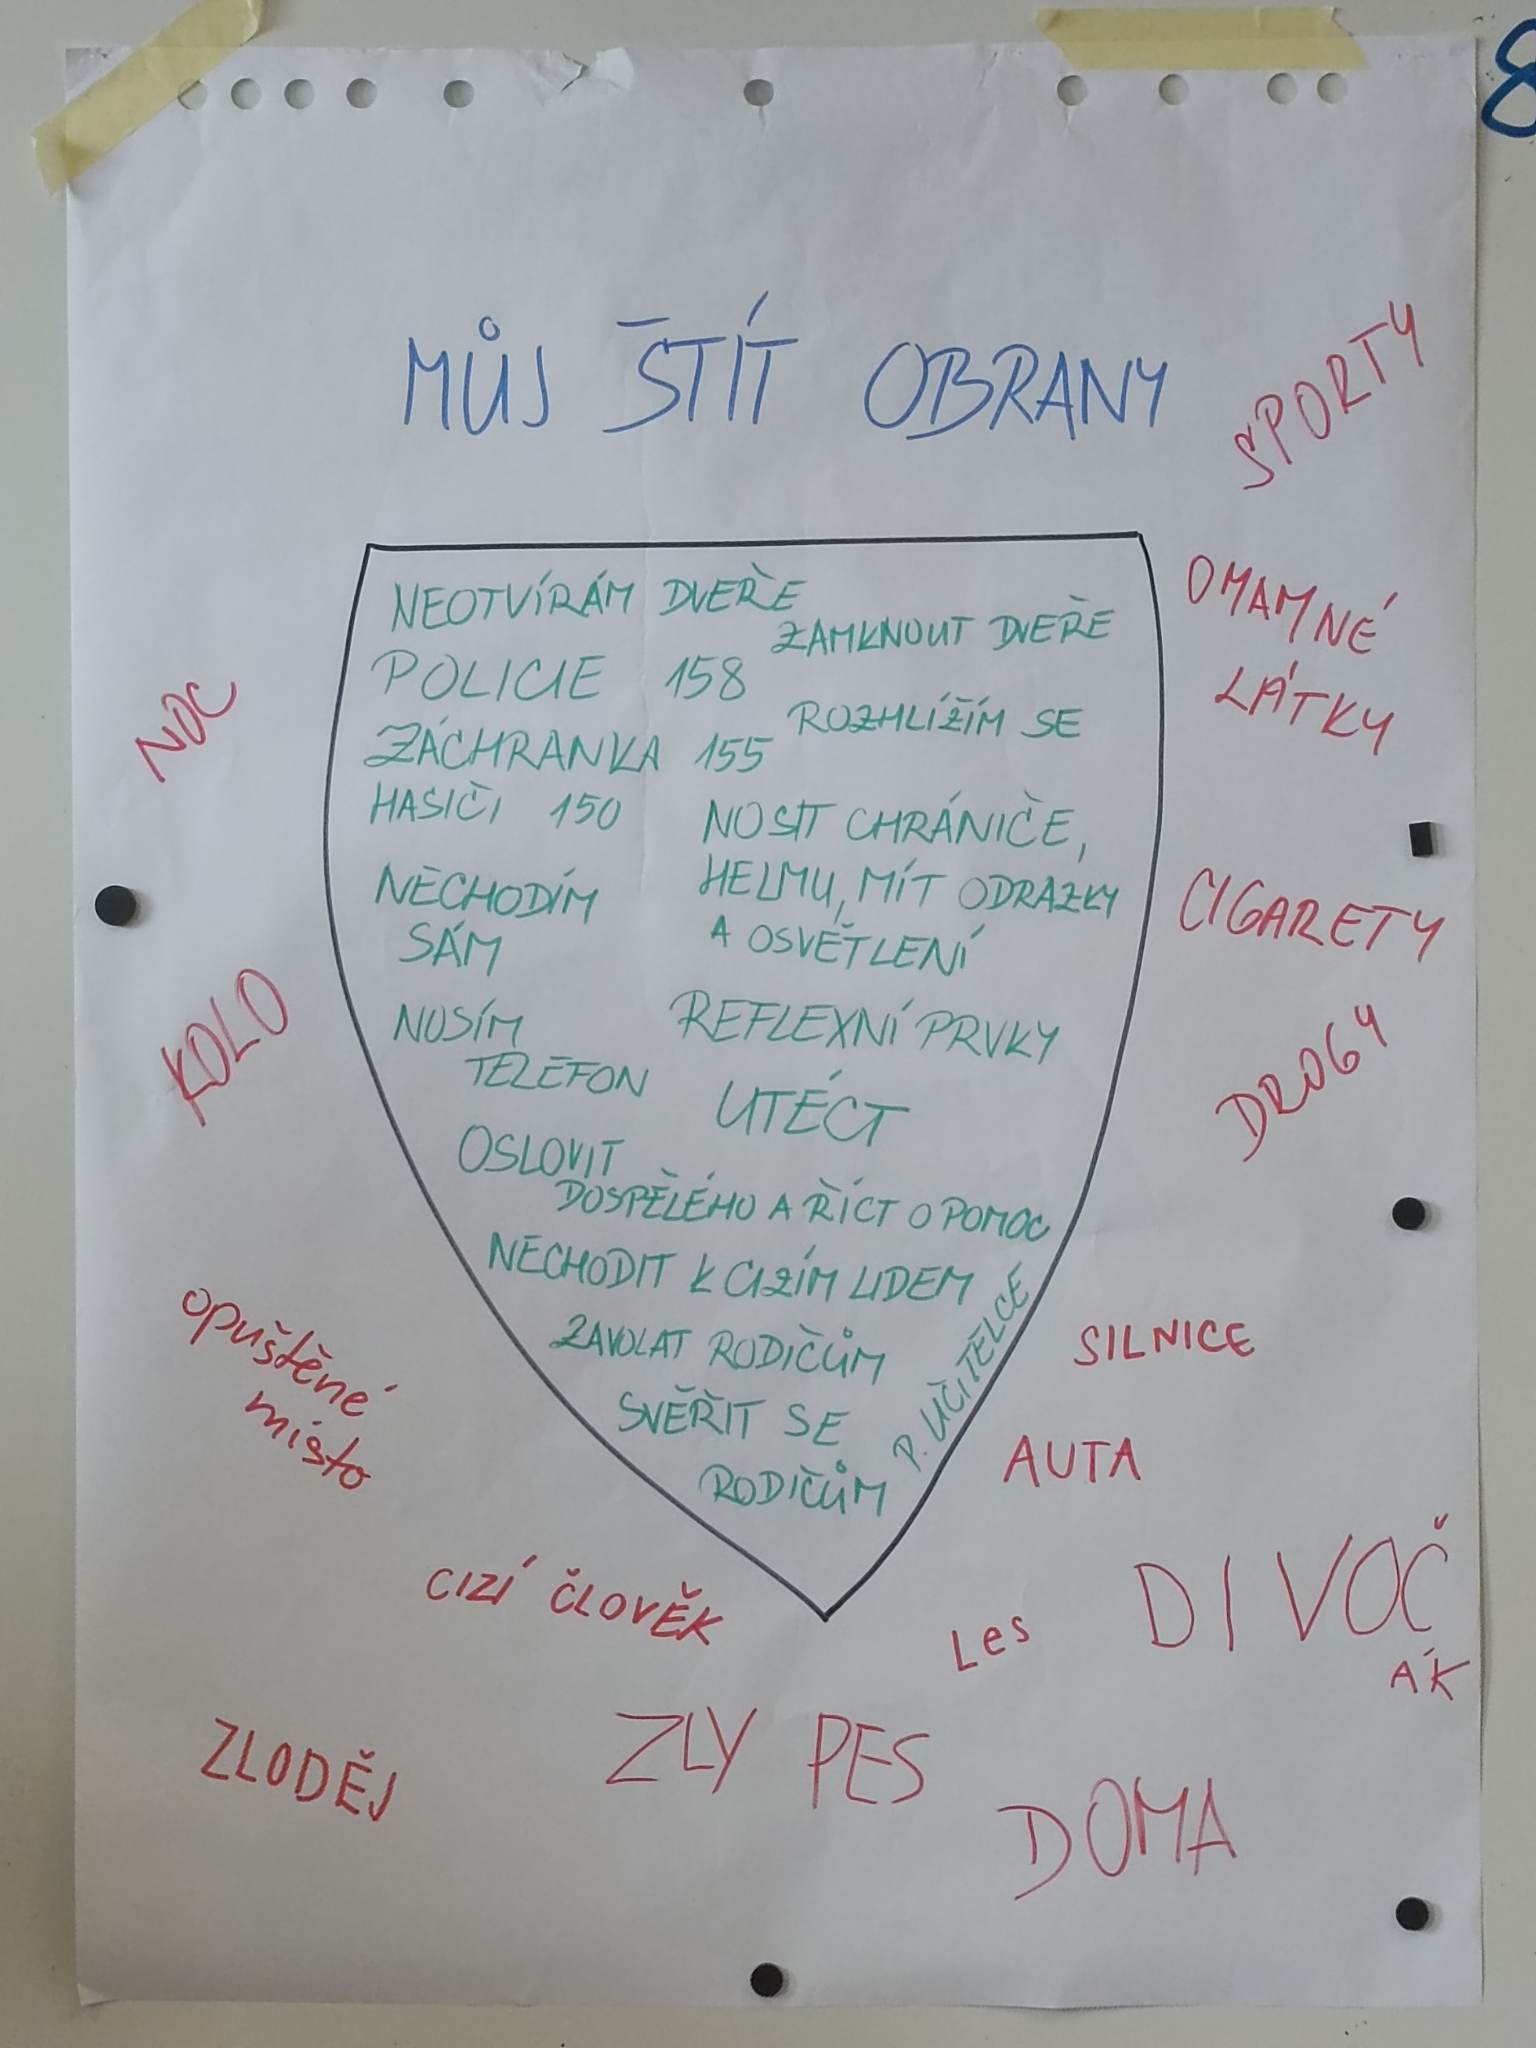 8
MŮJ ŠTÍT OBRANY
SPORTY
OMAMNÉ
LÁTKY
CIGARETY
DROGY
NOC
KOLO
NEOTVÍRÁM DVEŘE
ZAMKNOUT DVEŘE
POLICIE 158
ROZHLÍŽÍM SE
ZÁCHRANKA 155
HASIČI 150
NOSIT CHRÁNIČE,
HELMU, MÍT ODRAZKY
A OSVĚTLENÍ
NECHODÍM
SÁM
NOSÍM
TELEFON
REFLEXNÍ PRVKY
UTÉCT
OSLOVIT
DOSPĚLÉHO A ŘÍCT O POMOC
NECHODIT K CIZÍM LIDEM
ZAVOLAT RODIČŮM
SVĚŘIT SE
RODIČŮM
P. UČITELCE
opuštěné
místo
SILNICE
AUTA
CIZÍ ČLOVĚK
Les
DIVOČ
ÁK
ZLODĚJ
ZLY PES
DOMA